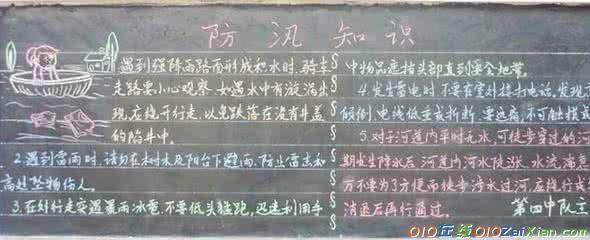 防汛知识
遇到强降雨路面形成积水时，骑车
走路要小心观察，如遇水中有漩涡出
现应绕开行走，以免跌落在没有井盖
的陷井中。
2.遇到雷雨时，请勿在树木及阳台下避雨，防止雷击和
高处坠物伤人。
3.在外行走突遇暴雨冰雹，不要低头猛跑，迅速利用手
中物品遮挡头部直到安全地带。
4.发生雷电时，不要在室外接打电话，发现
倾倒，电线低垂或折断，要远离，不可触摸或
5.对于河道内平时无水，可徒步穿过的河
期发生降水后河道内河水陡涨，水流湍急
万不要为了方便而徒步涉水过河，应绕行或
消退后再行通过。
第四中队主
010在线010ZaiXian.Com